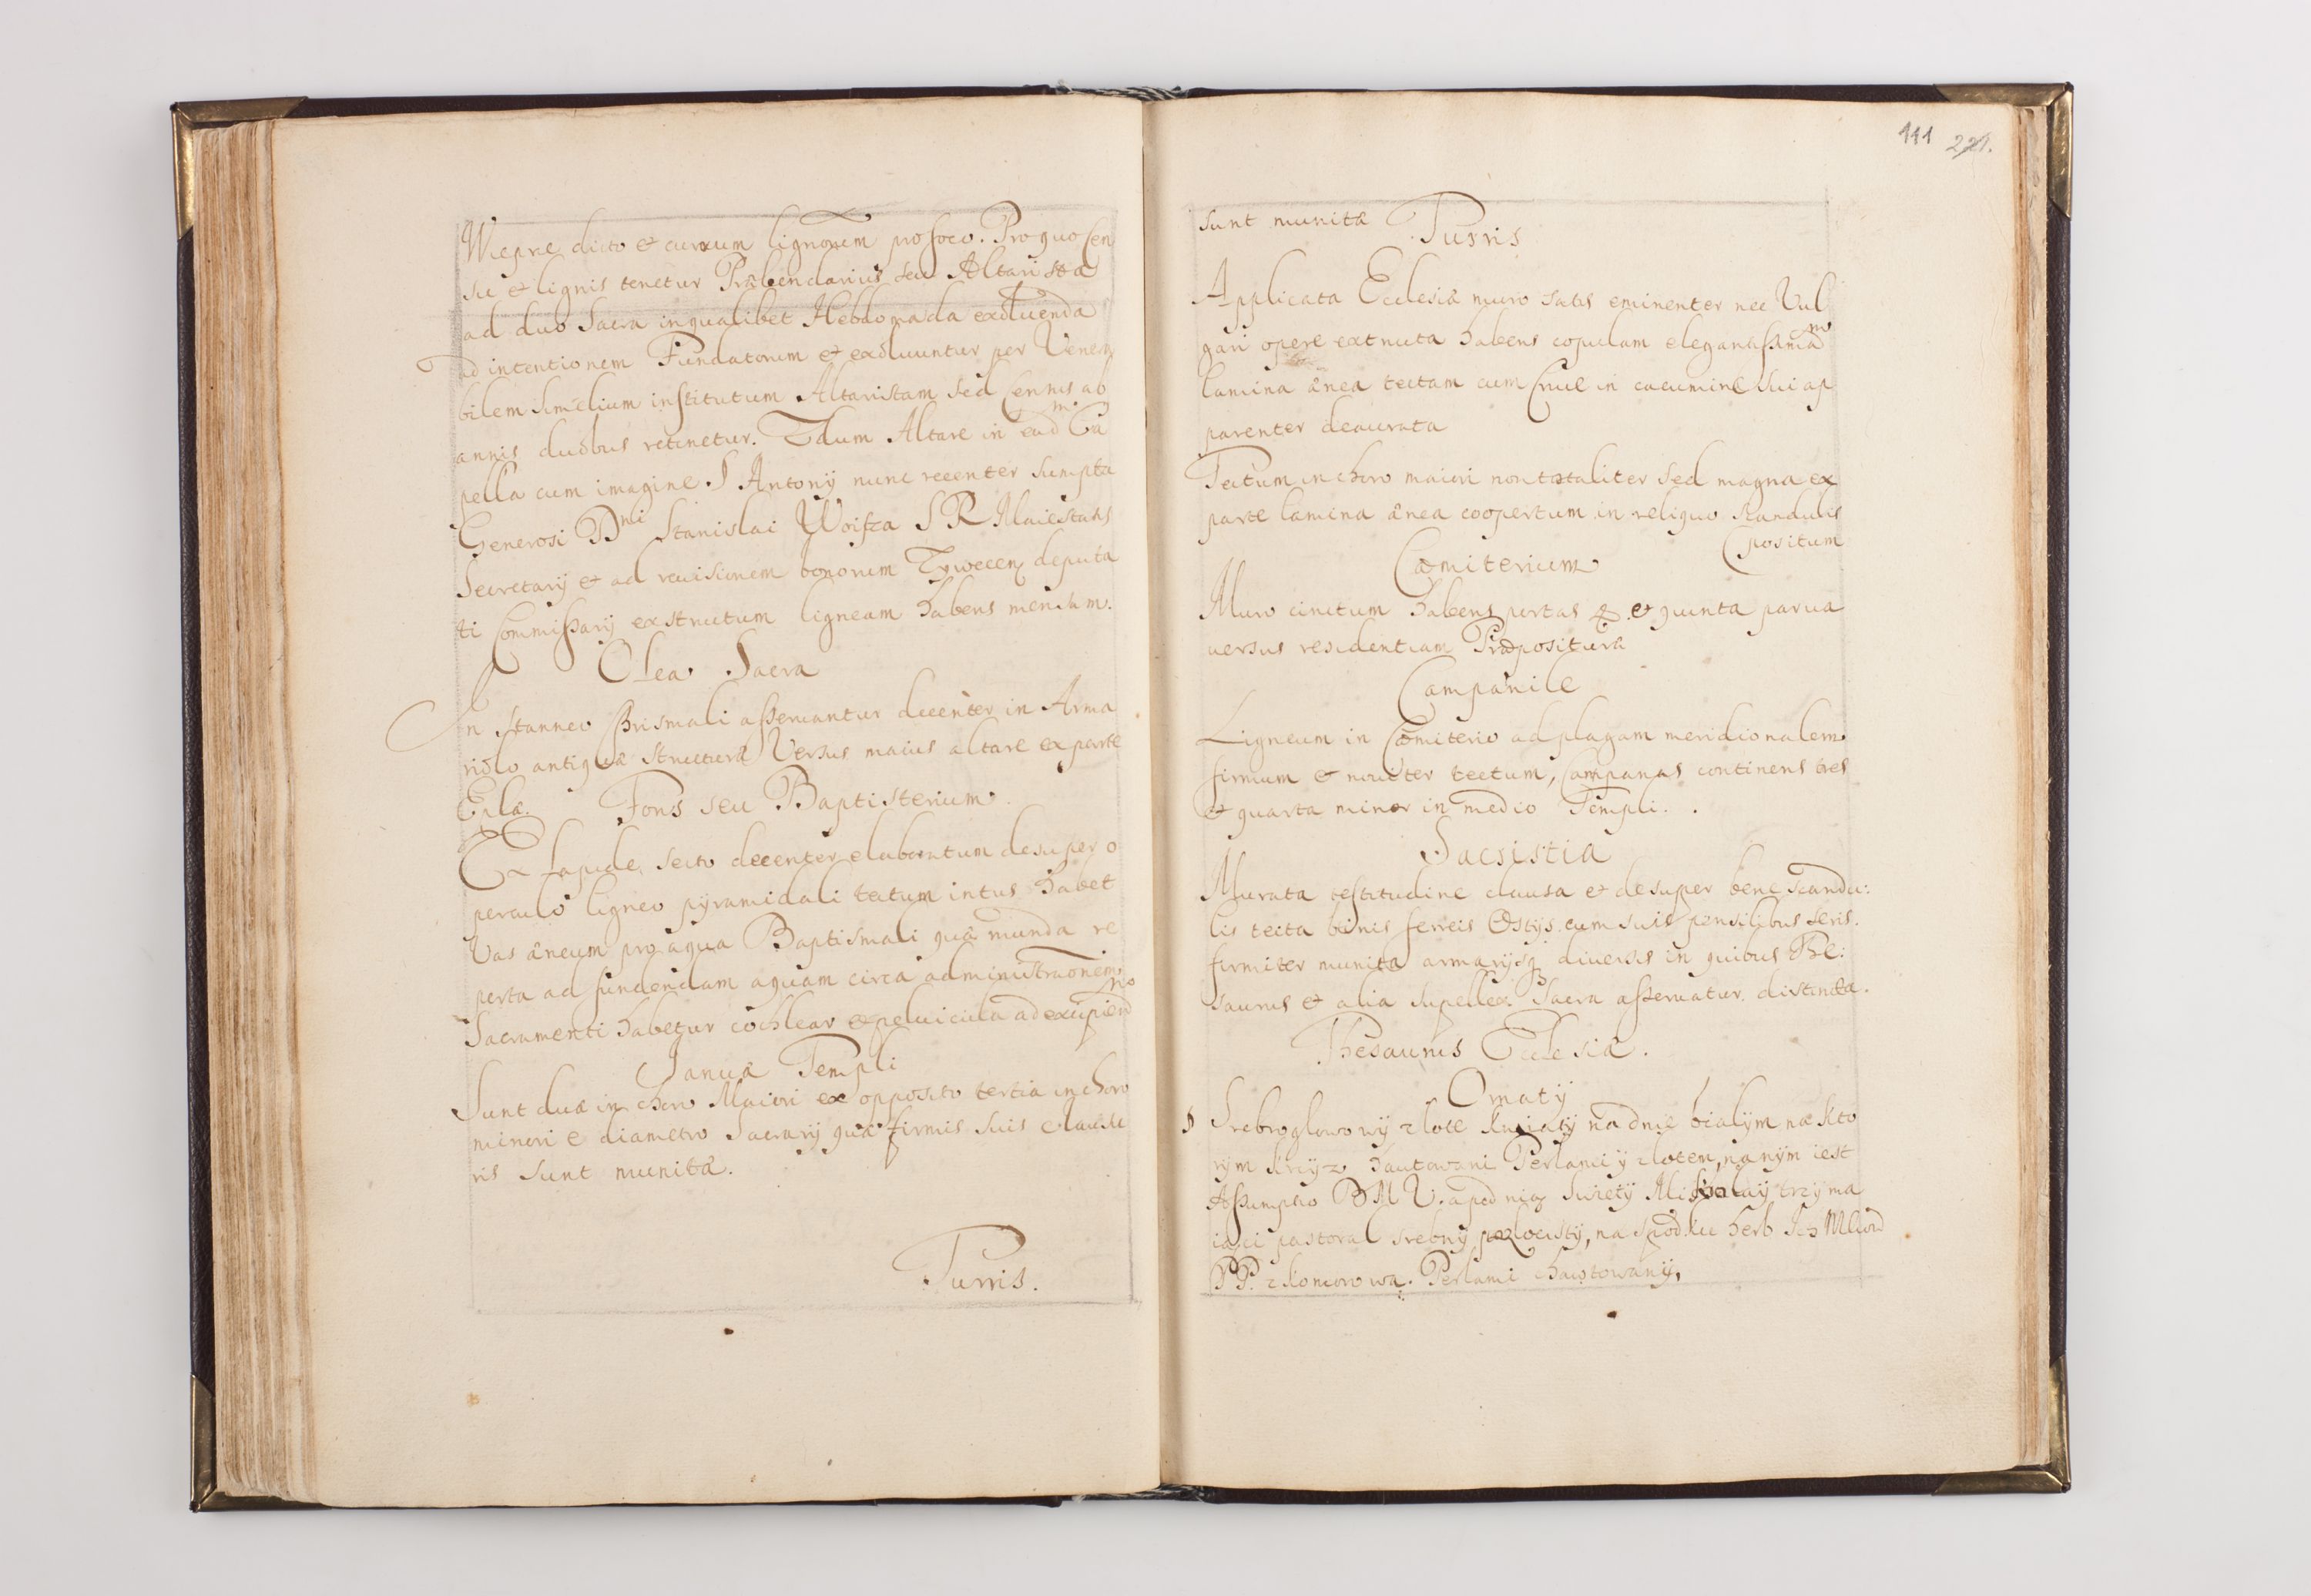 Wiepre dicto & curruum lignorum pro foco. Pro quo Cen
su & lignis tenetur Præbendarius seu Altarista
ad duo Sacra in qualibet Hebdomada exoluenda
ad intentionem Fundatorum & exoluuntur per Venera
bilem Simelium institutum Altaristam sed Census ab
annis duobus retinetur. Tdum Altare in ead^m Ca
pella cum imagine S Antonÿ nunc recenter sumptu
Generosi D^ni Stanislai Woifza S R Maiestatis
Secretarÿ & ad reuisionem bonorum Zÿwecen deputa
ti Commissarÿ exstructum ligneam habens mensam.
Olea Sacra
In stanneo Chrismali asseruantur decenter in Arma
riolo antiquæ structuræ Versus maius altare ex parte
Eplæ. Fons seu Baptisterium.
Ex Lapide secto decenter elaboratum desuper o
perculo ligneo pÿramidali tectum intus habet
Vas æneum pro aqua Baptismali quæ munda re
perta ad fundendam aquam circa administraonem
Sacramenti habetur cochlear & peluicula ad excipiend^m
Januæ Templi
Sunt duæ in choro Maiori ex opposito tertia in choro
minori e diametro Sacrarÿ quæ firmis suis claustu
ris sunt munitæ.
Turris.
111 221.
sunt munitæ Turris
Applicata Ecclesiæ muro satis eminenter nec Vul
gari opere extructa habens copulam elegantissima^m
lamina ænea tectam cum Cruce in cacumine sui ap
parenter deaurata
Tectum in choro maiori non totaliter sed magna ex
parte lamina ænea coopertum in reliquo scandulis
(positum
Cœmiterium
Muro cinctum habens portas 4. & quinta parua
uersus residentiam Præpositura
Campanile
Ligneum in Cœmiterio ad plagam meridionalem
firmum & nouiter tectum, Campanas continens tres
& quarta minor in medio Templi.
Sacristia
Murata testitudine clausa & desuper bene scandu:
lis tecta binis ferreis Ostÿs cum suis pensilibus seris
firmiter munita armarÿsq diuersis in quibus The:
saurus et alia supellex Sacra asseruatur distincta.
Thesaurus Ecclesiæ.
Ornatÿ
1 Srebrogłowowÿ złote kwiatÿ na dnie białÿm na kto
rÿm krzÿz hautowani Perlami ÿ złotem, na nÿm iest
Assumptio B M V. a pod nią Swietÿ Mikołaÿ trzÿma
iąci pastorał srebnÿ pozłocistÿ, na spodku herb Ich Mciow
PP. z Komorowa. Perlami chawtowanÿ,